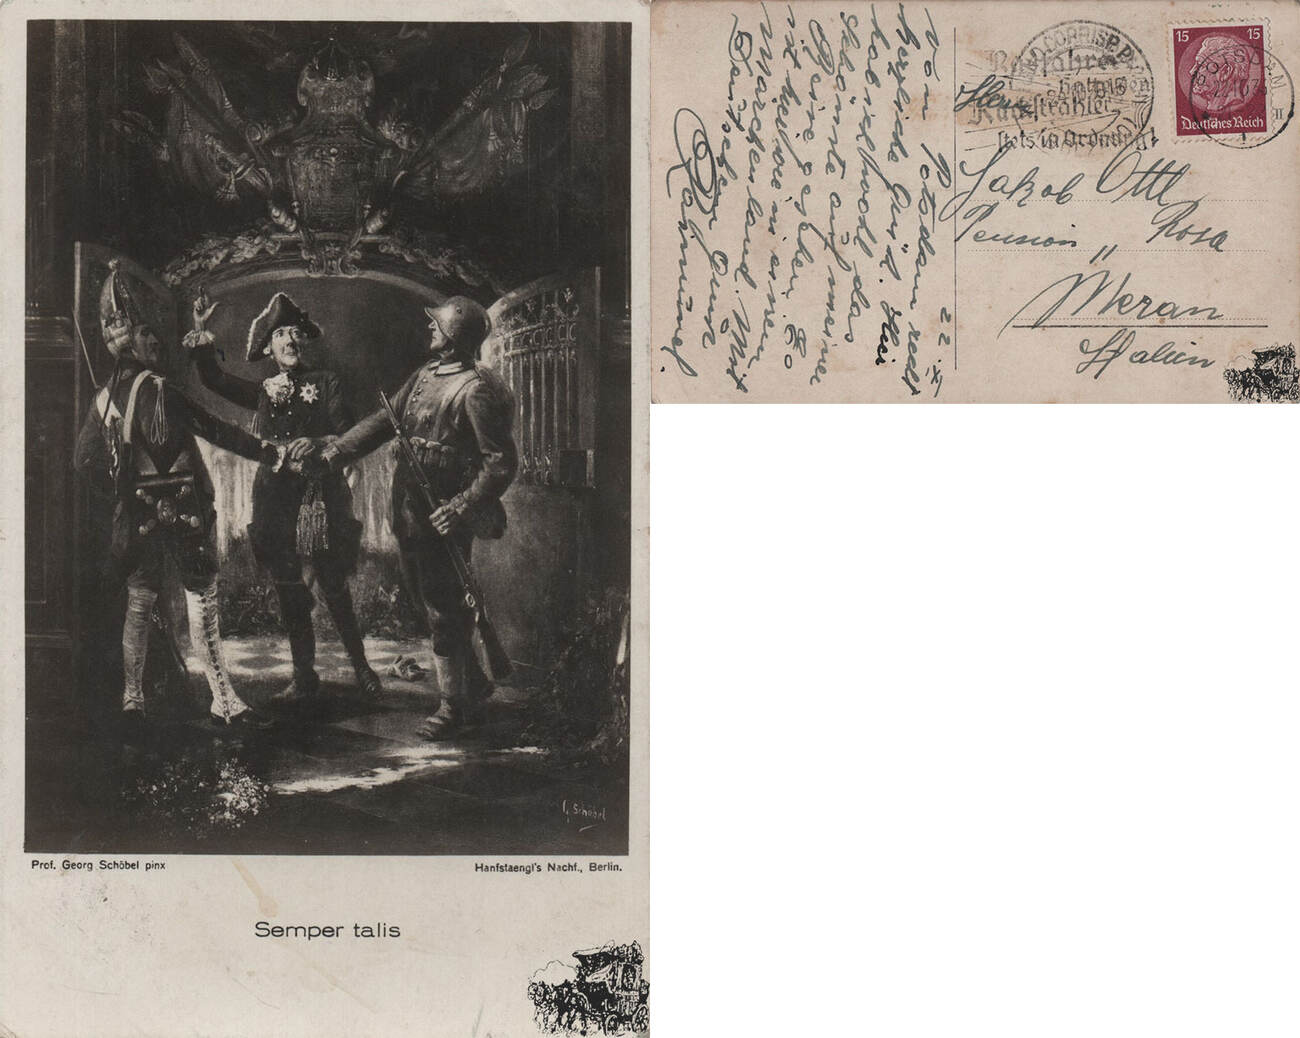 G. Schöbel
Prof. Georg Schöbel pinx
Hanfstaengl's Nachf., Berlin.
Semper talis
22. X.
Von Potsdam recht
herzliche Grüße. Hier
hab ich wohl das
Schönste auf meiner
Reise gesehen. Es
ist hier wie in einem
Märchenland. Mit
Deutschem Gruß
Radfahrer
haltet
Rückstrahler
stets in Ordnung!
15 15
Deutsches Reich
POTSDAM
Herrn
Jakob Ottl
Pension „ Rosa
Meran
Italien